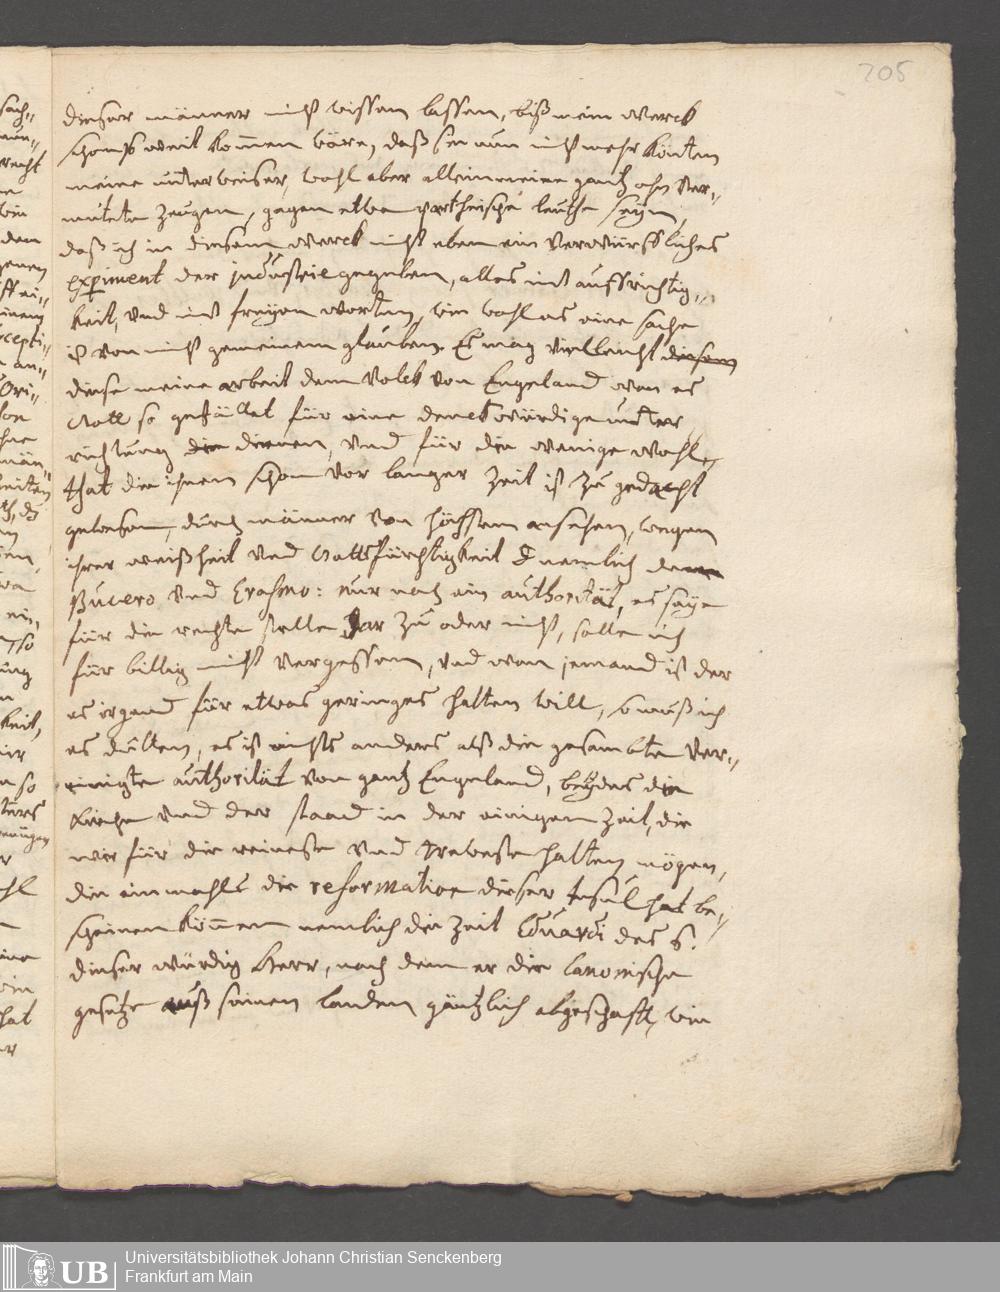 205
dieser männer nicht wissen lassen, biß mein werck
schon so weit kommen wäre, daß sie nun nicht mehr könten
meine unterweiser, wohl aber allein meine gantz ohn ver-
mutete zeugen, gegen etwa partheische leuthe seyn,
daß ich in diesem werck nicht eben ein verwürffliches
experiment der industrie gegeben, alles mit auffrichtig-
keit, und mit freyen worten, wie wohl es eine sache
ist von nicht gemeinem glauben. Es mag vielleicht diesem
diese meine arbeit dem Volck von Engeland wan es
Gott so gefället für eine denckwürdige unter
richtung die dienen, und für die wenige wohl-
that die ihnen schon vor langer zeit ist zu gedacht
gewesen, durch männer von höchstem ansehen, wegen
ihrer weißheit und Gottsfürchtigkeit nemlich dem
Bucero und Erasmo: nur noch ein authorität, es seye
für die rechte stelle gar zu oder nicht, solle ich
für billig nicht vergessen, und wan jemand ist der
es irgend für etwas geringes halten will, so muß ich
es dulten, es ist nichts anders alß die gesambte ver-
einigte authorität von gantz Engeland, beydes die
Kirche und der staad in der einigen zeit, die
wir für die reineste und treweste halten mögen,
die einmahls die reformation dieser Insul hat be-
scheinen können nemlich die zeit Eduardi des 6.
dieser würdig Herr, nach dem er die canonische
gesetze auß seinen landen gäntzlich abgeschafft, wie
Universitätsbibliothek Johann Christian Senckenberg
Frankfurt am Main
UB